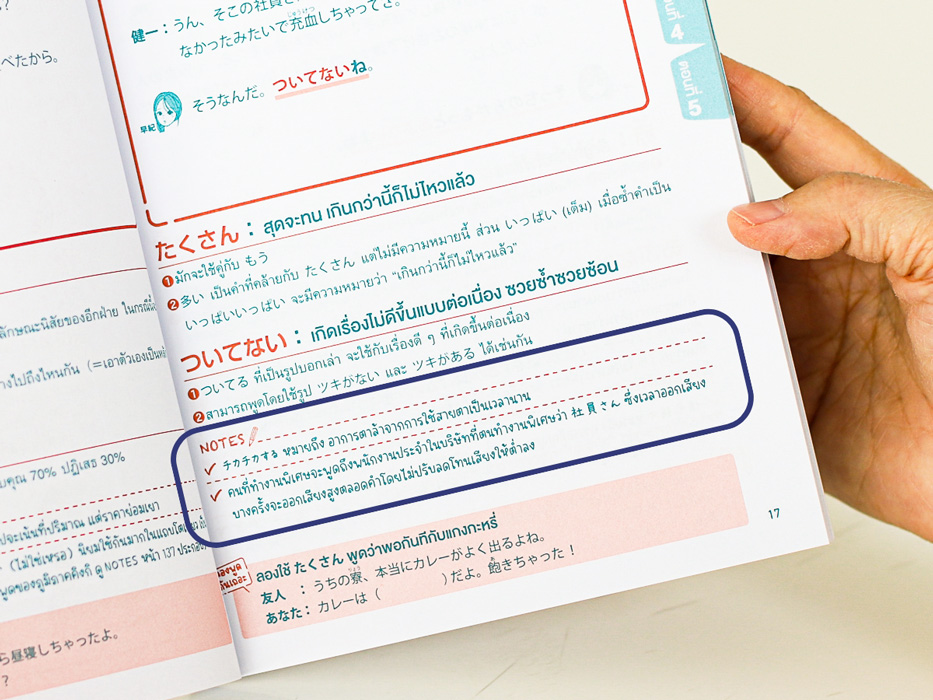 べたから。
ลักษณะนิสัยของอีกฝ่าย ในกรณีนี้
างไปถึงไหนกัน (=เอาตัวเองเป็นหลัก
บคุณ 70% ปฏิเสธ 30%
ปจะเน้นที่ปริมาณ แต่ราคาย่อมเยา
(ไม่ใช่เหรอ) นิยมใช้กันมากในแถบโตเกียว
พูดของภูมิภาคคิงกิ ดู NOTES หน้า 137 ประกอบ
ら昼寝しちゃったよ。
?
健一：うん、そこの社員さ
なかったみたいで充血しちゃってさ。
じゅうけつ
早紀
そうなんだ。ついてないね。
たくさん : สุดจะทน เกินกว่านี้ก็ไม่ไหวแล้ว
❶ มักจะใช้คู่กับ もう
❷ 多い เป็นคำที่คล้ายกับ たくさん แต่ไม่มีความหมายนี้ ส่วน いっぱい (เต็ม) เมื่อซ้ำคำเป็น
いっぱいいっぱい จะมีความหมายว่า “เกินกว่านี้ก็ไม่ไหวแล้ว”
ついてない : เกิดเรื่องไม่ดีขึ้นแบบต่อเนื่อง ซวยซ้ำซวยซ้อน
❶ ついてる ที่เป็นรูปบอกเล่า จะใช้กับเรื่องดี ๆ ที่เกิดขึ้นต่อเนื่อง
❷ สามารถพูดโดยใช้รูป ツキがない และ ツキがある ได้เช่นกัน
NOTES
✓ チカチカする หมายถึง อาการตาล้าจากการใช้สายตาเป็นเวลานาน
✓ คนที่ทำงานพิเศษจะพูดถึงพนักงานประจำในบริษัทที่ตนทำงานพิเศษว่า 社員さん ซึ่งเวลาออกเสียง
บางครั้งจะออกเสียงสูงตลอดคำโดยไม่ปรับลดโทนเสียงให้ต่ำลง
ลองพูด
กันเถอะ
ลองใช้ たくさん พูดว่าพอกันทีกับแกงกะหรี่
りょう
友人 : うちの寮、本当にカレーがよく出るよね。
あなた : カレーは ( ) だよ。飽きちゃった！
17
ตอนที่ 4
ตอนที่ 5